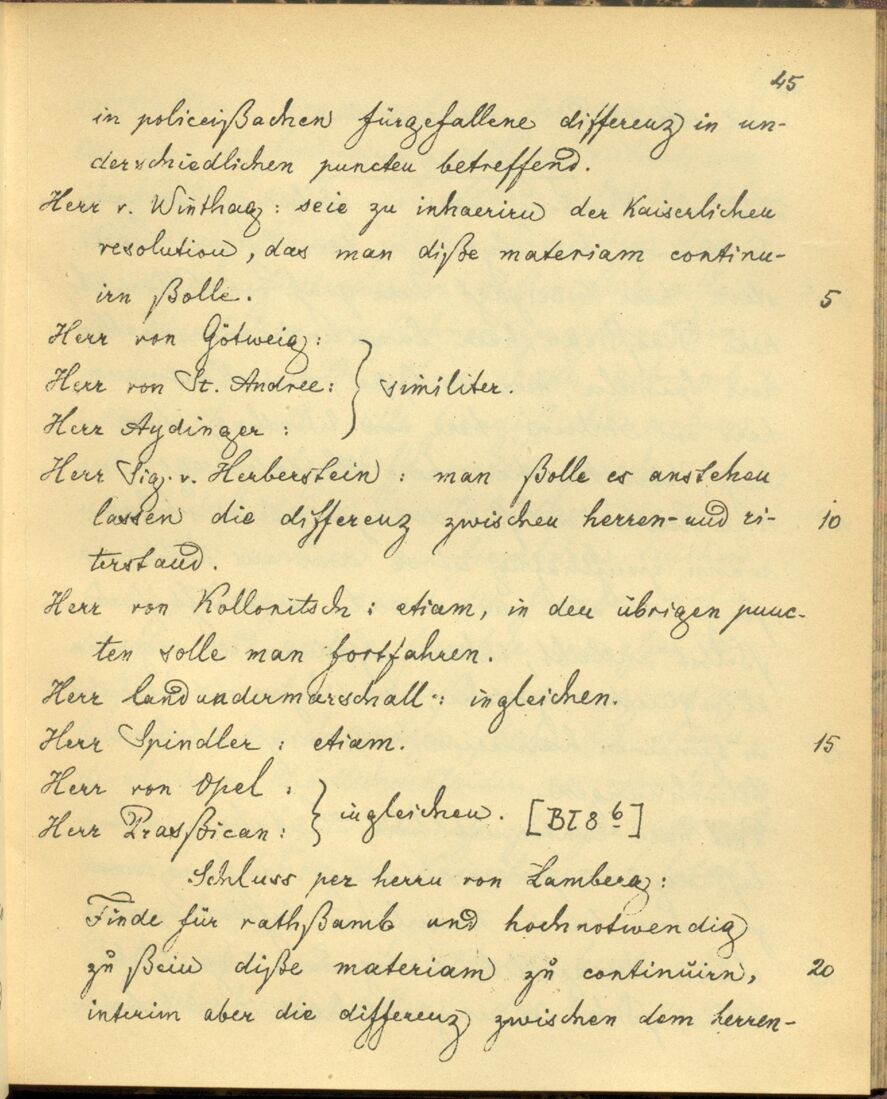 45
in policeißachen fürgefallene differenz in un-
derschiedlichen puncten betreffend.
Herr v. Winthag: seie zu inhaerirn der Kaiserlichen
resolution, das man diße materiam continu-
irn ßolle. 5
Herr von Götweig:
Herr von St. Andree: } similiter.
Herr Aydinger:
Herr Sig. v. Herberstein: man ßolle es anstehen
lassen die differenz zwischen herren- und ri- 10
terstand.
Herr von Kollonitsch: etiam, in den übrigen punc-
ten solle man fortfahren.
Herr landundermarschall: ingleichen.
Herr Spindler: etiam. 15
Herr von Opel:
} ingleichen. [BT 8 b]
Herr Praßican:
Schluss per herrn von Lamberg:
Finde für rathßamb und hochnotwendig
zů ßein diße materiam zů continůirn, 20
interim aber die differenz zwischen dem herren-